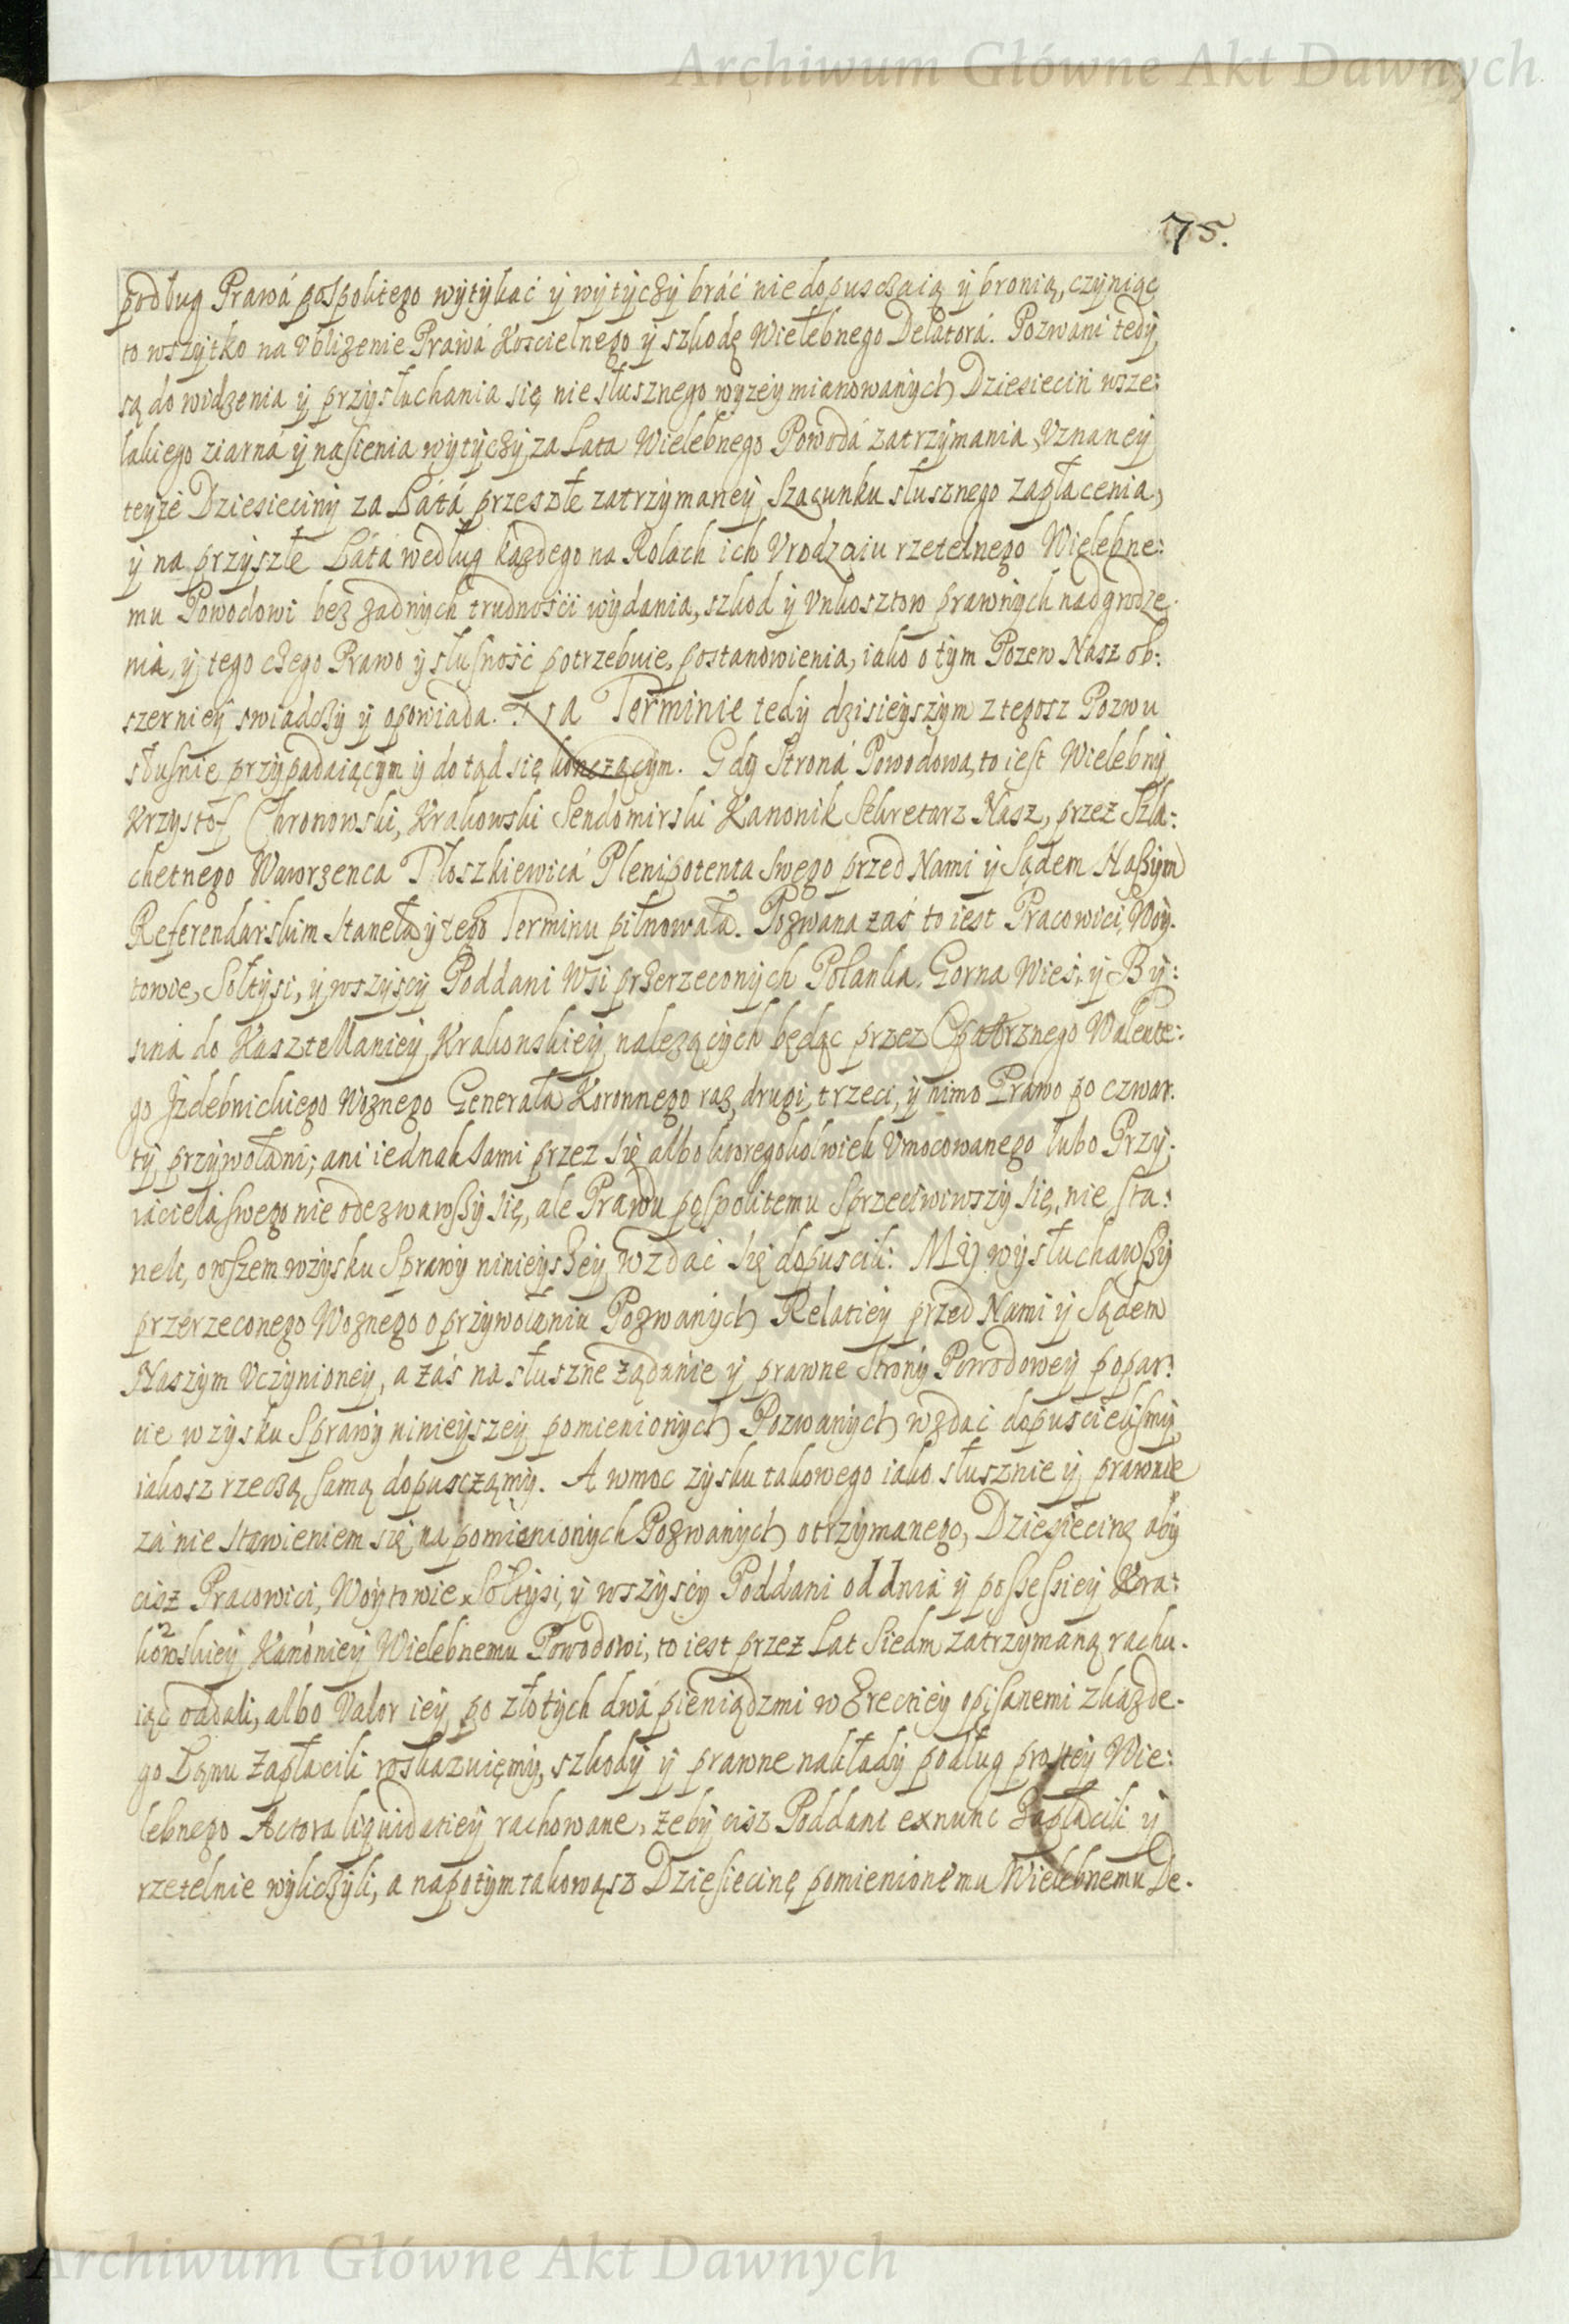 Archiwum Główne Akt Dawnych
75.
podług Prawá pospolitego wytykać ÿ wytÿczÿ bráć nie dopusczaią ÿ bronią, czÿniąc
to wszÿtko na Vblizenie Prawá Koscielnego ÿ szkodę Wielebnego Delatorá. Pozwani tedÿ
są do widzenia ÿ przÿsłuchania się nie słusznego wyzeÿ mianowanÿch Dziesiecin wsze:
lakiego ziarná ÿ nasienia wÿtÿczÿ za Lata Wielebnego Powodá zatrzÿmania, Vznaneÿ
teÿze Dziesiecinÿ za Látá przeszłe zatrzÿmaneÿ Szacunku słusznego zapłacenia,
ÿ na przÿszłe Látá według kazdego na Rolach ich Vrodzaiu rzetelnego Wielebne:
mu Powodowi bez zadnÿch trudnosci wÿdania, szkod ÿ Vnkosztow prawnÿch nadgrodze.
nia, ÿ tego czego Prawo ÿ słusność potrzebuie, postanowienia, iako o tÿm Pozew Nasz ob:
szernieÿ swiadczÿ ÿ opowiada. Na Terminie tedÿ dzisieÿszÿm z tegosz Pozwu
słusnie przÿpadaiącÿm ÿ do tąd się konczącÿm. Gdÿ Stroná Powodowa, to iest Wielebnÿ
Krzÿstof Chronowski, Krakowski Sendomirski Kanonik Sekretarz Nasz, przez Szla:
chetnego Wawrzenca Płoszkiewicá Plenipotenta Swego przed Nami ÿ Sądem Naszÿm
Referendarskim Staneła ÿ tego Terminu pilnowała. Pozwana zaś to iest Pracowici, Woÿ.
towie, Sołtÿsi, ÿ wszÿscÿ Poddani Wsi przerzeconÿch Polanka, Gorna Wieś, ÿ Bÿ:
siná do Kasztellanieÿ Krakowskieÿ nalezącÿch będąc przez Opatrznego Walente:
go Jzdebnickiego Woznego Generała Koronnego raz, drugi, trzeci, ÿ nimo Prawo po czwar.
tÿ przÿwołani; ani iednak Sami przez się albo ktoregokolwiek Vmocowanego lubo Przÿ.
iacielá swego nie odezwawszÿ się, ale Prawu pospolitemu Sprzeciwiwszÿ się, nie sta:
neli, owszem wzÿsku Sprawÿ ninieÿszeÿ wzdać się dopuscili: Mÿ wÿsłuchawszÿ
przerzeconego Woznego o przÿwołaniu Pozwanÿch Relatieÿ przed Nami ÿ Sądem
Naszÿm Vczÿnioneÿ, a zaś na słuszne ządanie ÿ prawne Stronÿ Powodoweÿ popar:
cie wzÿsku Sprawÿ ninieÿszeÿ pomienionÿch Pozwanÿch wzdać dopuscielismÿ,
iakosz rzeczą samą dopusczamÿ. A wmoc zÿsku takowego iako słusznie ÿ prawnie
zá nie stawieniem się na pomienionÿch Pozwanÿch otrzÿmanego, Dziesiecinę abÿ
cisz Pracowici, Woÿtowie, Sołtÿsi, ÿ wszÿscÿ Poddani od dnia ÿ possessieÿ Kra:
kowskieÿ Kanonieÿ Wielebnemu Powodowi, to iest przez Lat Siedm zatrzÿmaną rachu.
iąc oddali, albo Valor ieÿ po złotÿch dwá pieniądzmi w Erectieÿ opisanemi z kazde.
go Łanu zapłacili roskazuięmÿ, szkodÿ ÿ prawne nakładÿ podług prosteÿ Wie:
lebnego Actora liquidatieÿ rachowane, zebÿ cisz Poddani exnunc zapłacili ÿ
rzetelnie wÿliczÿli, a napotÿm takowąsz Dziesiecinę pomienionemu Wielebnemu De.
Archiwum Główne Akt Dawnych